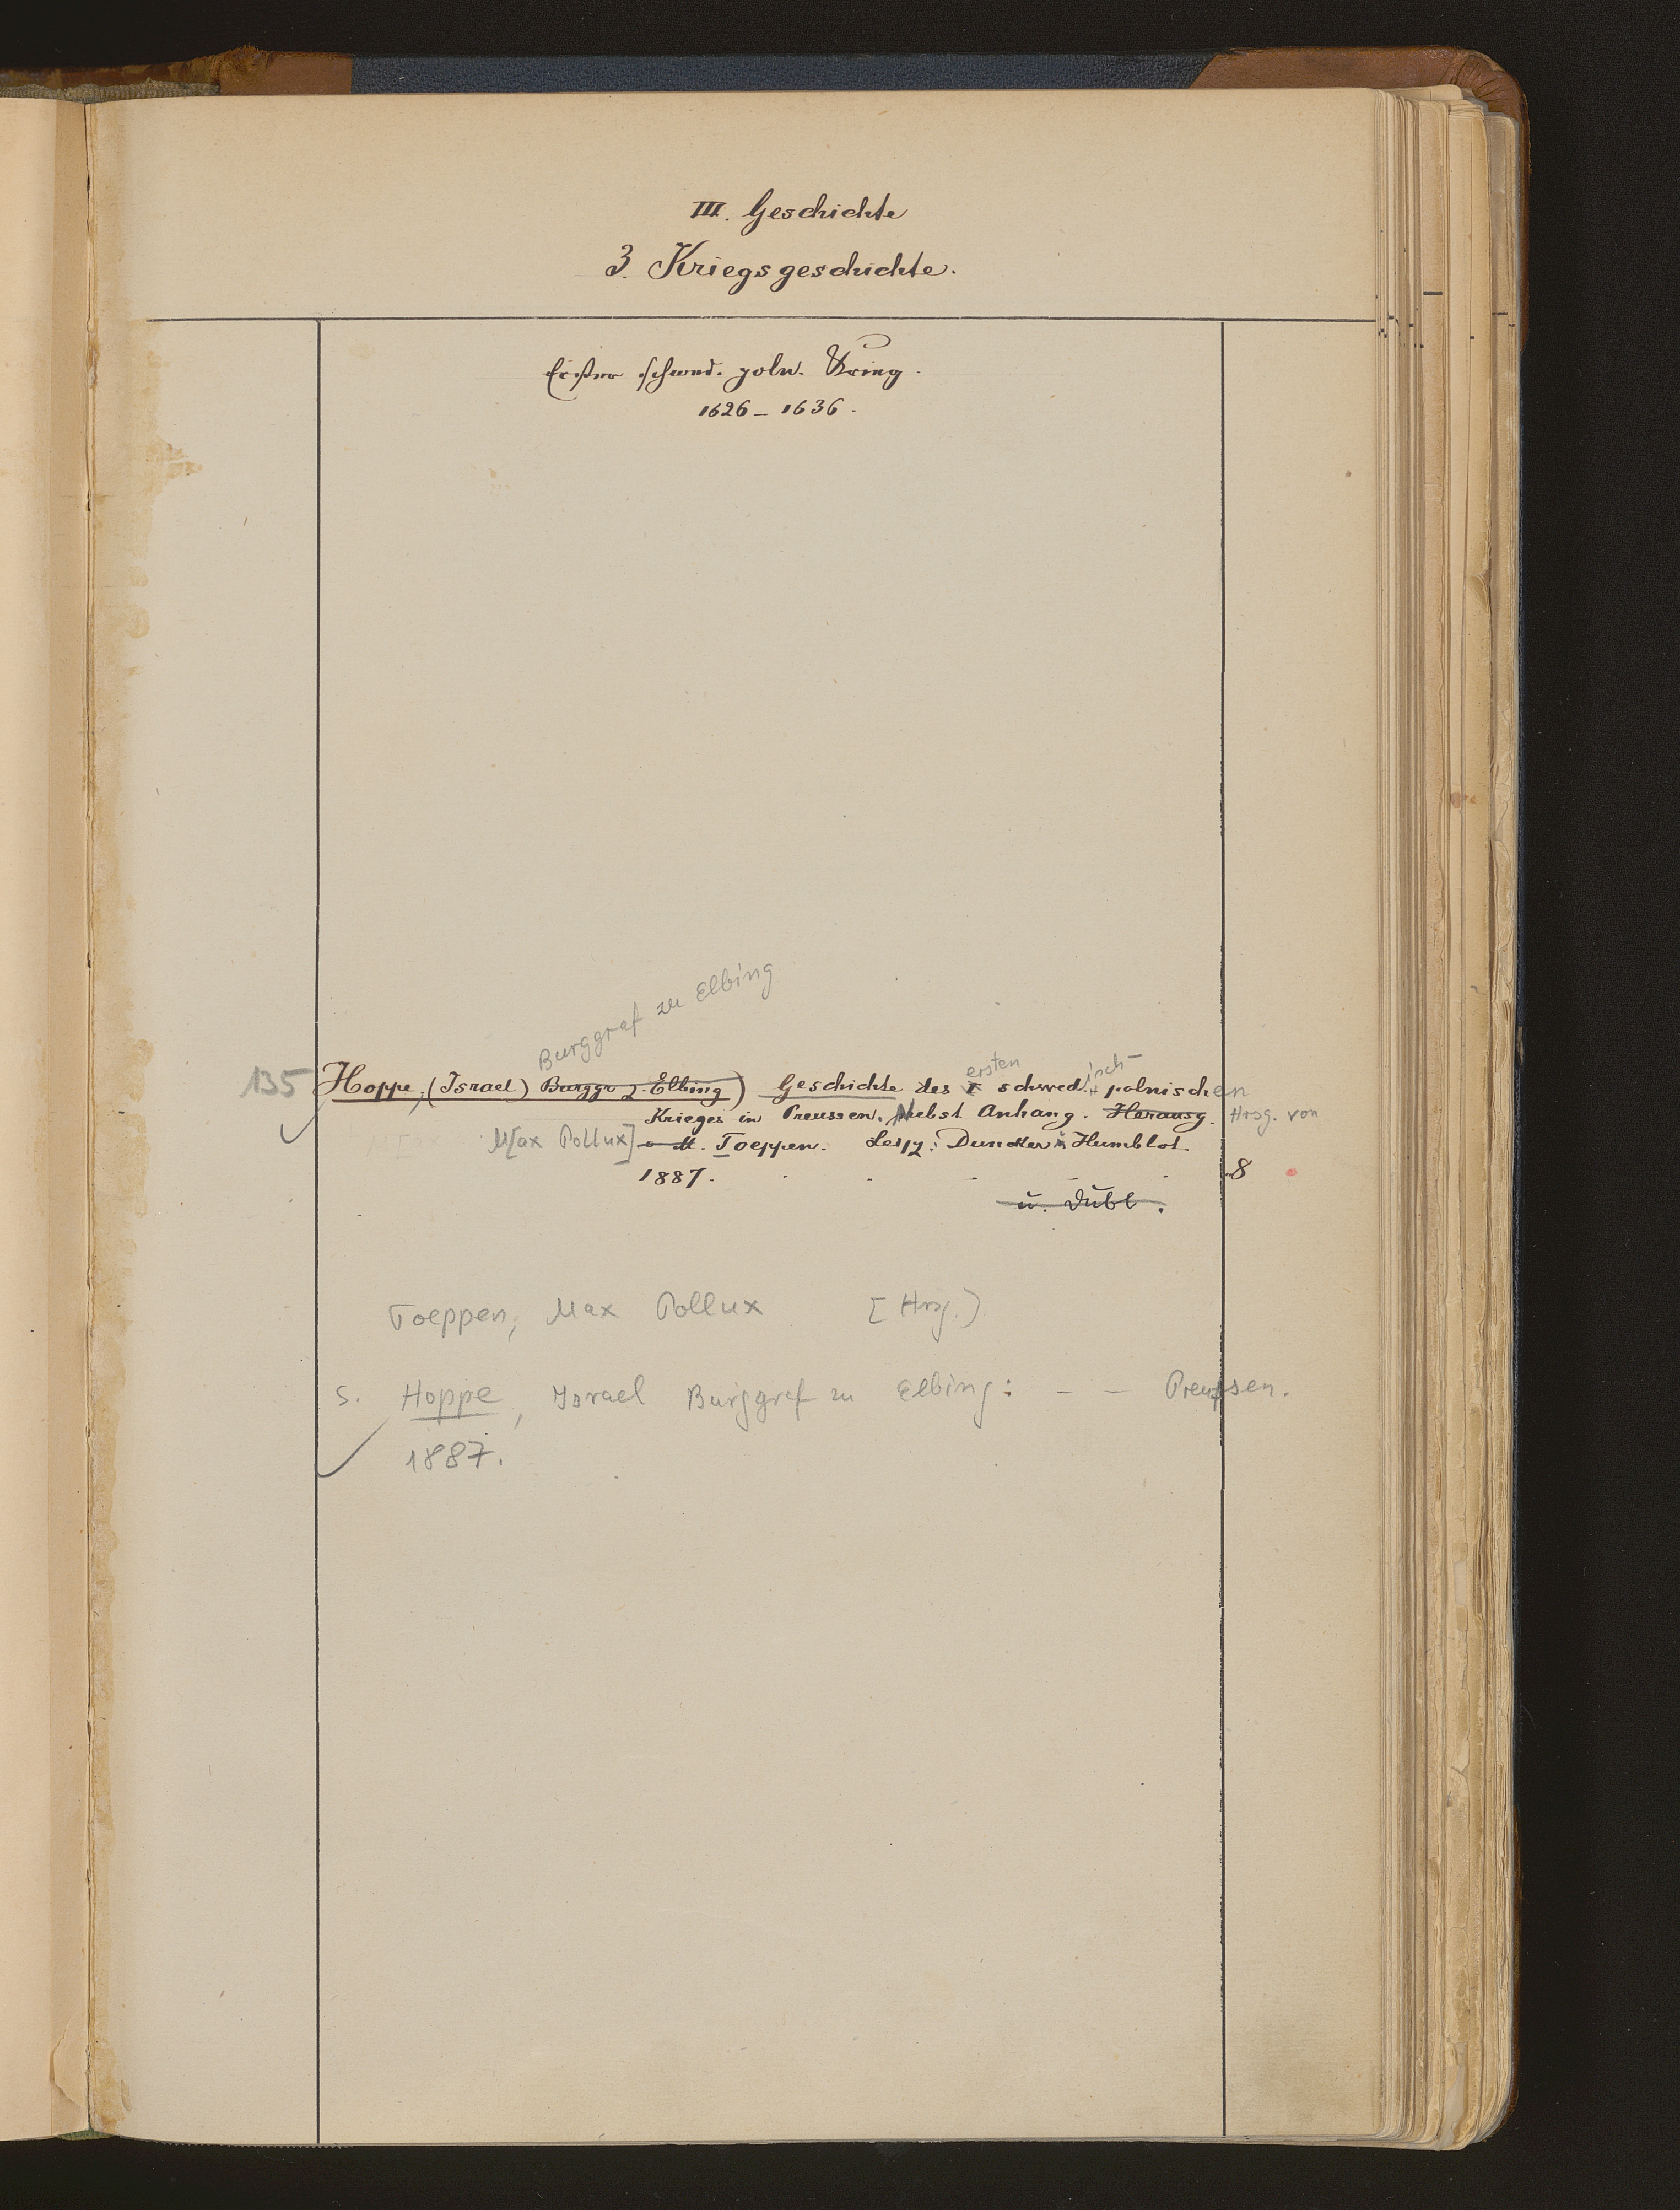 III. Geschichte
3. Kriegsgeschichte.
Erster schwed. poln. Krieg.
1626 – 1636.
Burggraf zu Elbing
ersten isch-
135 Hoppe, (Israel) Burggr z. Elbing) Geschichte des I schwed. polnischen
Krieges in Preussen. Nebst Anhang. Herausg. Hrsg. von
M[ax Pollux] v. M. Toeppen. Leipz: Duncker u Humblot
1887. 8
u. Dubl.
Toeppen, Max Pollux [Hrsg.)
s. Hoppe, Israel Burggraf zu Elbing: – – Preußsen.
1887.